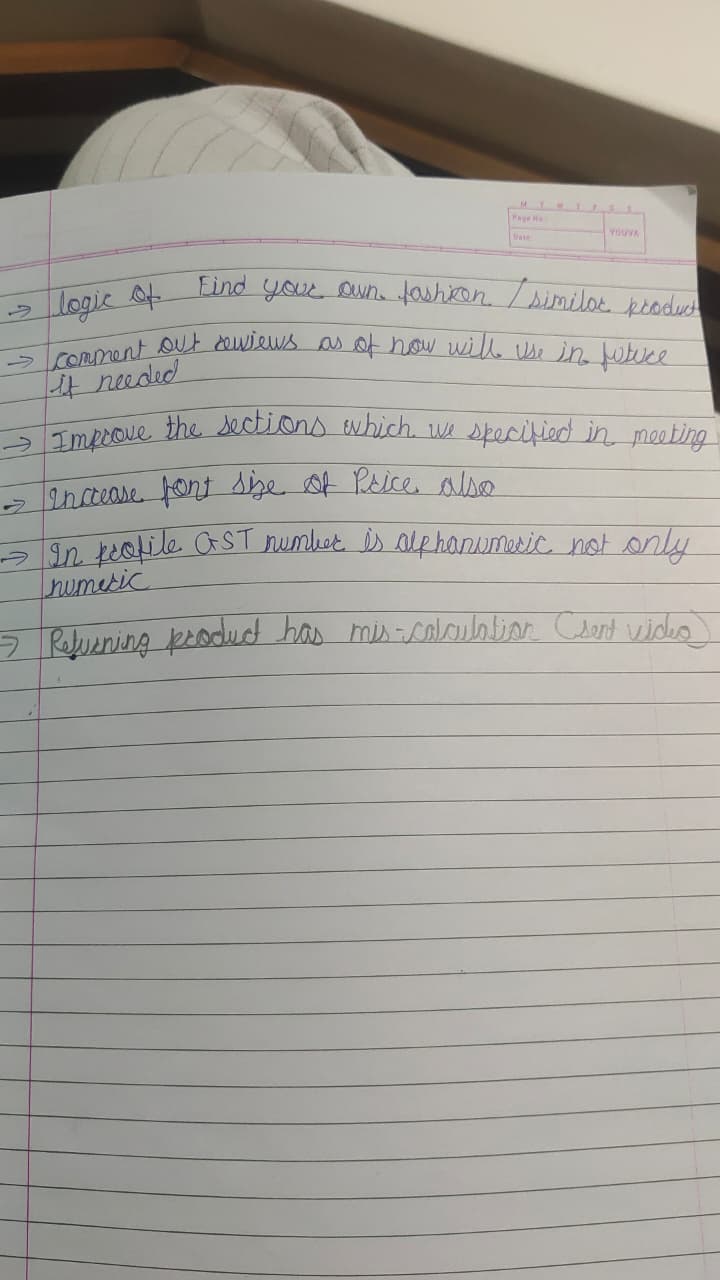 M T W T F S S
Page No.:
Date:
YOUVA
→ logic of Find your own fashion / similar product
→ comment out reviews as of now will use in future
if needed
→ Improve the sections which we specified in meeting
→ Increase font size of Price also
→ In profile GST number is alphanumeric not only
numeric
→ Returning product has mis-calculation (sent video)